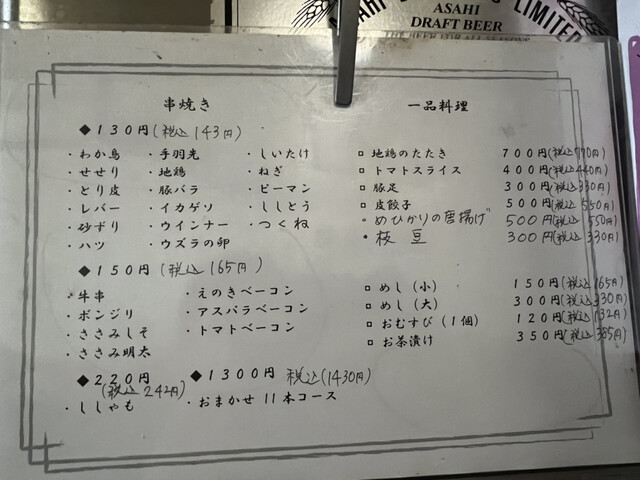 ASAHI
DRAFT BEER
THE BEER FOR ALL SEASONS
LIMITED
串焼き
◆130円(税込143円)
・わか鳥 ・手羽先 ・しいたけ
・せせり ・地鶏 ・ねぎ
・とり皮 ・豚バラ ・ピーマン
・レバー ・イカゲソ ・ししとう
・砂ずり ・ウインナー ・つくね
・ハツ ・ウズラの卵
◆150円(税込165円)
・牛串 ・えのきベーコン
・ボンジリ ・アスパラベーコン
・ささみしそ ・トマトベーコン
・ささみ明太
◆220円 ◆1300円 税込(1430円)
(税込242円)
・ししゃも ・おまかせ11本コース
一品料理
□ 地鶏のたたき 700円(税込770円)
□ トマトスライス 400円(税込440円)
□ 豚足 300円(税込330円)
□ 皮餃子 500円(税込550円)
・めひかりの唐揚げ 500円(税込550円)
・枝豆 300円(税込330円)
□ めし(小) 150円(税込165円)
□ めし(大) 300円(税込330円)
□ おむすび(1個) 120円(税込132円)
□ お茶漬け 350円(税込385円)